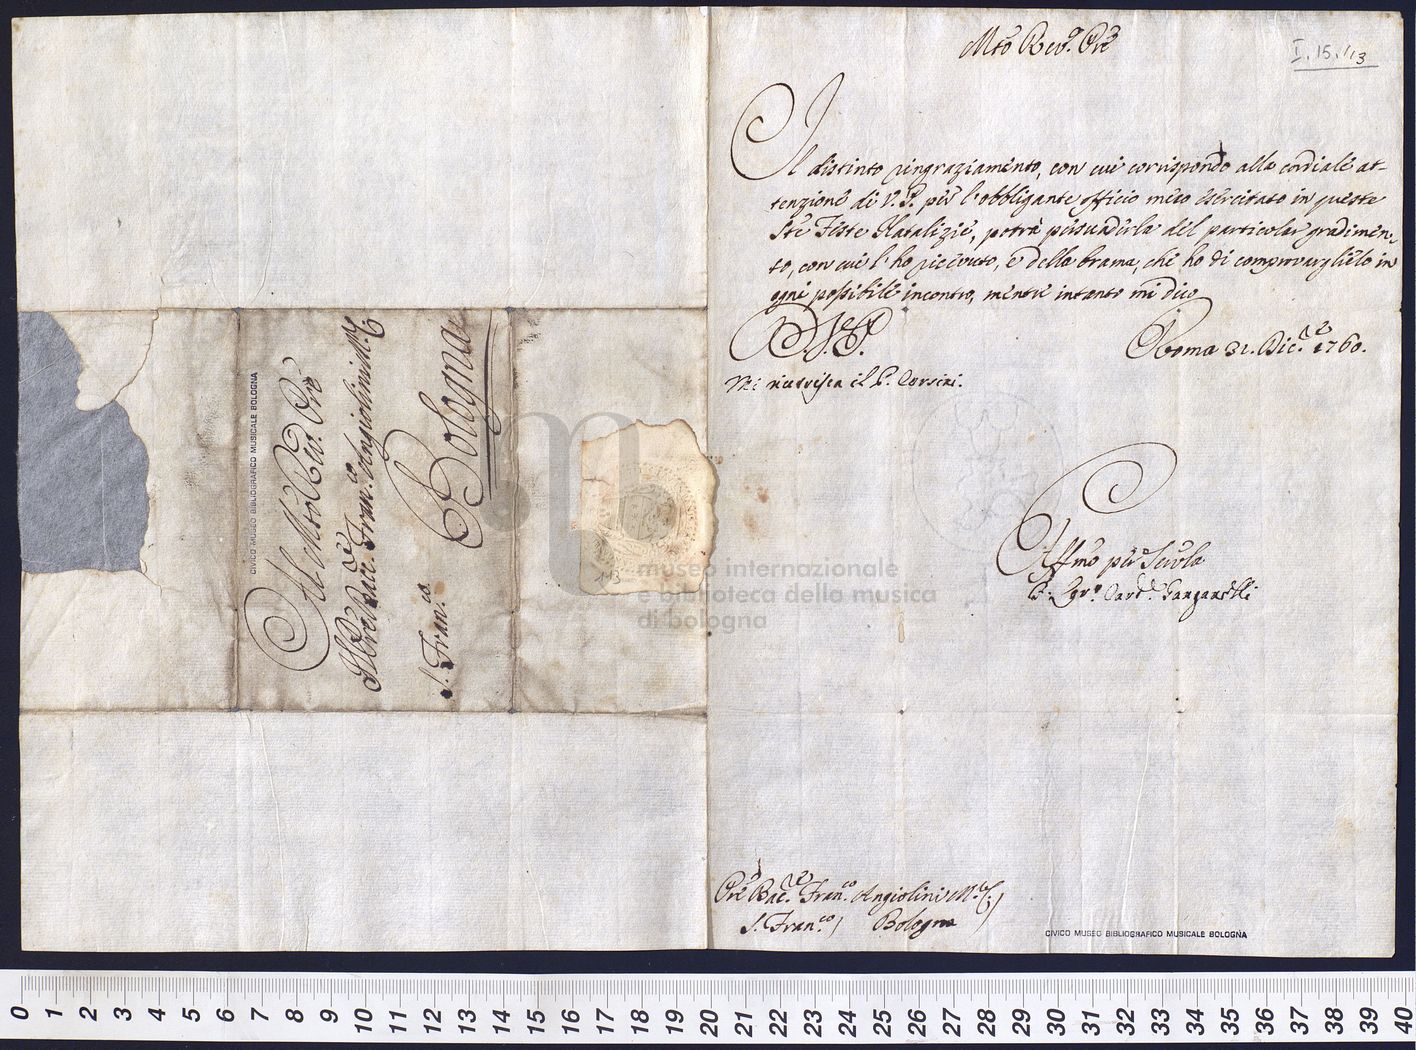 Mto Revdo. Pre
I.15.113
Il distinto ringraziamento, con cui corrispondo alla cordiale at-
tenzione di V.P. per l'obbligante officio meco esercitato in queste
Ste Feste Natalizie, potrà persuaderla del particolar gradimen-
to, con cui l'ho ricevuto, e della brama, che ho di comprovarglielo in
ogni possibile incontro, mentre intanto mi dico
Roma 31. Dic.re 1760.
Mi riverisca il P. Corsini.
Affmo per Servla
F. Lor.o Card.l Ganganelli
Pre Bac.re Fran.co Angiolini M.C.
S. Fran.co) Bologna
CIVICO MUSEO BIBLIOGRAFICO MUSICALE BOLOGNA
Al Mto Revdo. Pre
Bac.re Fran.co Angiolini M.C.
Bologna
S. Fran.co
CIVICO MUSEO BIBLIOGRAFICO MUSICALE BOLOGNA
113
museo internazionale
e biblioteca della musica
di bologna
0 1 2 3 4 5 6 7 8 9 10 11 12 13 14 15 16 17 18 19 20 21 22 23 24 25 26 27 28 29 30 31 32 33 34 35 36 37 38 39 40